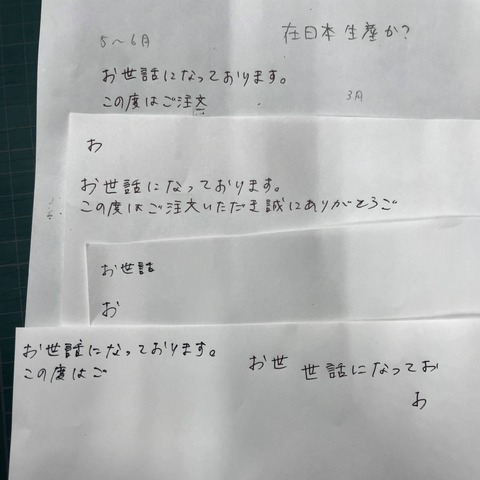 5〜6月
在日本生産か?
お世話になっております。
3月
この度はご注文
お
お世話になっております。
この度はご注文いただき誠にありがとうご
お世話
お
お世話になっております。
この度はご
お世
世話になってお
お